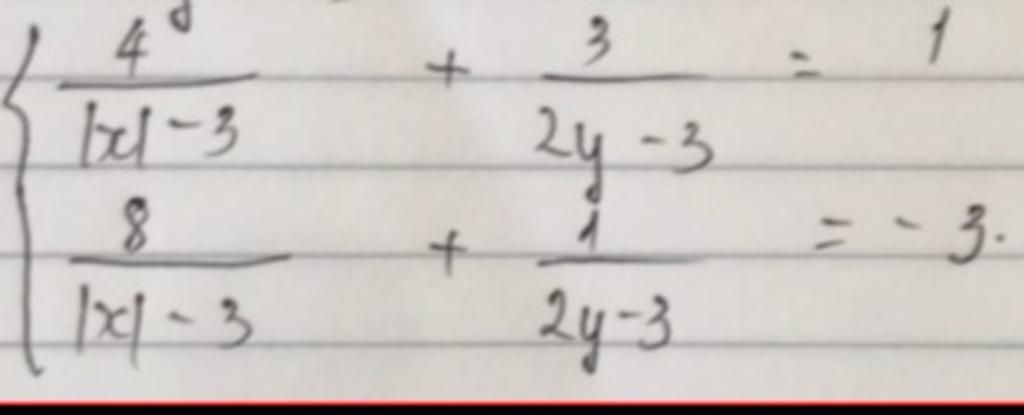 4/(|x| - 3) + 3/(2y - 3) = 1
8/(|x| - 3) + 1/(2y - 3) = - 3.